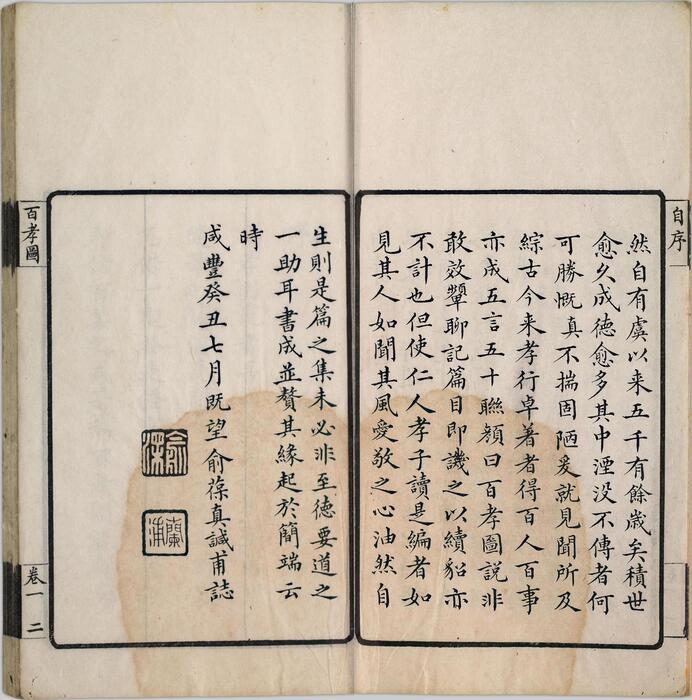 自序
然自有虞以来五千有餘歲矣積世
愈久成德愈多其中湮没不傳者何
可勝慨真不揣固陋爰就見聞所及
綜古今来孝行卓著者得百人百事
亦成五言五十聯顏曰百孝圖說非
敢效顰聊記篇目即譏之以續貂亦
不計也但使仁人孝子讀是編者如
見其人如聞其風愛敬之心油然自
生則是篇之集未必非至德要道之
一助耳書成並贅其緣起於簡端云
時
咸豐癸丑七月既望俞葆真誠甫誌
蘭浦
百孝圖
卷一 二